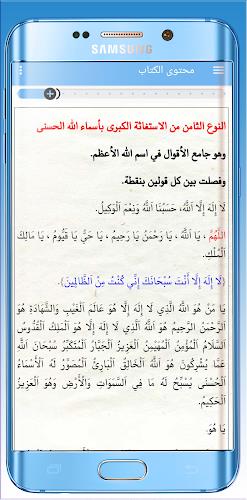 SAMSUNG
محتوى الكتاب
النوع الثامن من الاستغاثة الكبرى بأسماء الله الحسنى
وهو جامع الأقوال في اسم الله الأعظم.
وفصلت بين كل قولين بنقطة.
لَا إِلَهَ إِلَّا ٱللَّهُ، حَسْبُنَا ٱللَّهُ وَنِعْمَ ٱلْوَكِيلُ.
اللَّهُمَّ ، يَا ٱللَّهُ ، يَا رَحْمَنُ يَا رَحِيمُ ، يَا حَيُّ يَا قَيُّومُ ، يَا مَالِكَ
ٱلْمُلْكِ.
{لَا إِلَهَ إِلَّا أَنْتَ سُبْحَانَكَ إِنِّي كُنْتُ مِنَ ٱلظَّالِمِينَ}.
يَا مَنْ هُوَ ٱللَّهُ ٱلَّذِي لَا إِلَهَ إِلَّا هُوَ عَالِمُ ٱلْغَيْبِ وَٱلشَّهَادَةِ هُوَ
ٱلرَّحْمَنُ ٱلرَّحِيمُ هُوَ ٱللَّهُ ٱلَّذِي لَا إِلَهَ إِلَّا هُوَ ٱلْمَلِكُ ٱلْقُدُّوسُ
ٱلسَّلَامُ ٱلْمُؤْمِنُ ٱلْمُهَيْمِنُ ٱلْعَزِيزُ ٱلْجَبَّارُ ٱلْمُتَكَبِّرُ سُبْحَانَ ٱللَّهِ
عَمَّا يُشْرِكُونَ هُوَ ٱللَّهُ ٱلْخَالِقُ ٱلْبَارِئُ ٱلْمُصَوِّرُ لَهُ ٱلْأَسْمَاءُ
ٱلْحُسْنَى يُسَبِّحُ لَهُ مَا فِي ٱلسَّمَوَاتِ وَٱلْأَرْضِ وَهُوَ ٱلْعَزِيزُ
ٱلْحَكِيمُ.
يَا هُوَ.